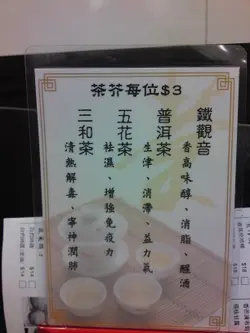 茶芥每位$3
鐵觀音
香高味醇、消脂、醒酒
普洱茶
生津、消滯、益力氣
五花茶
祛濕、增強免疫力
三和茶
清熱解毒、寧神潤肺